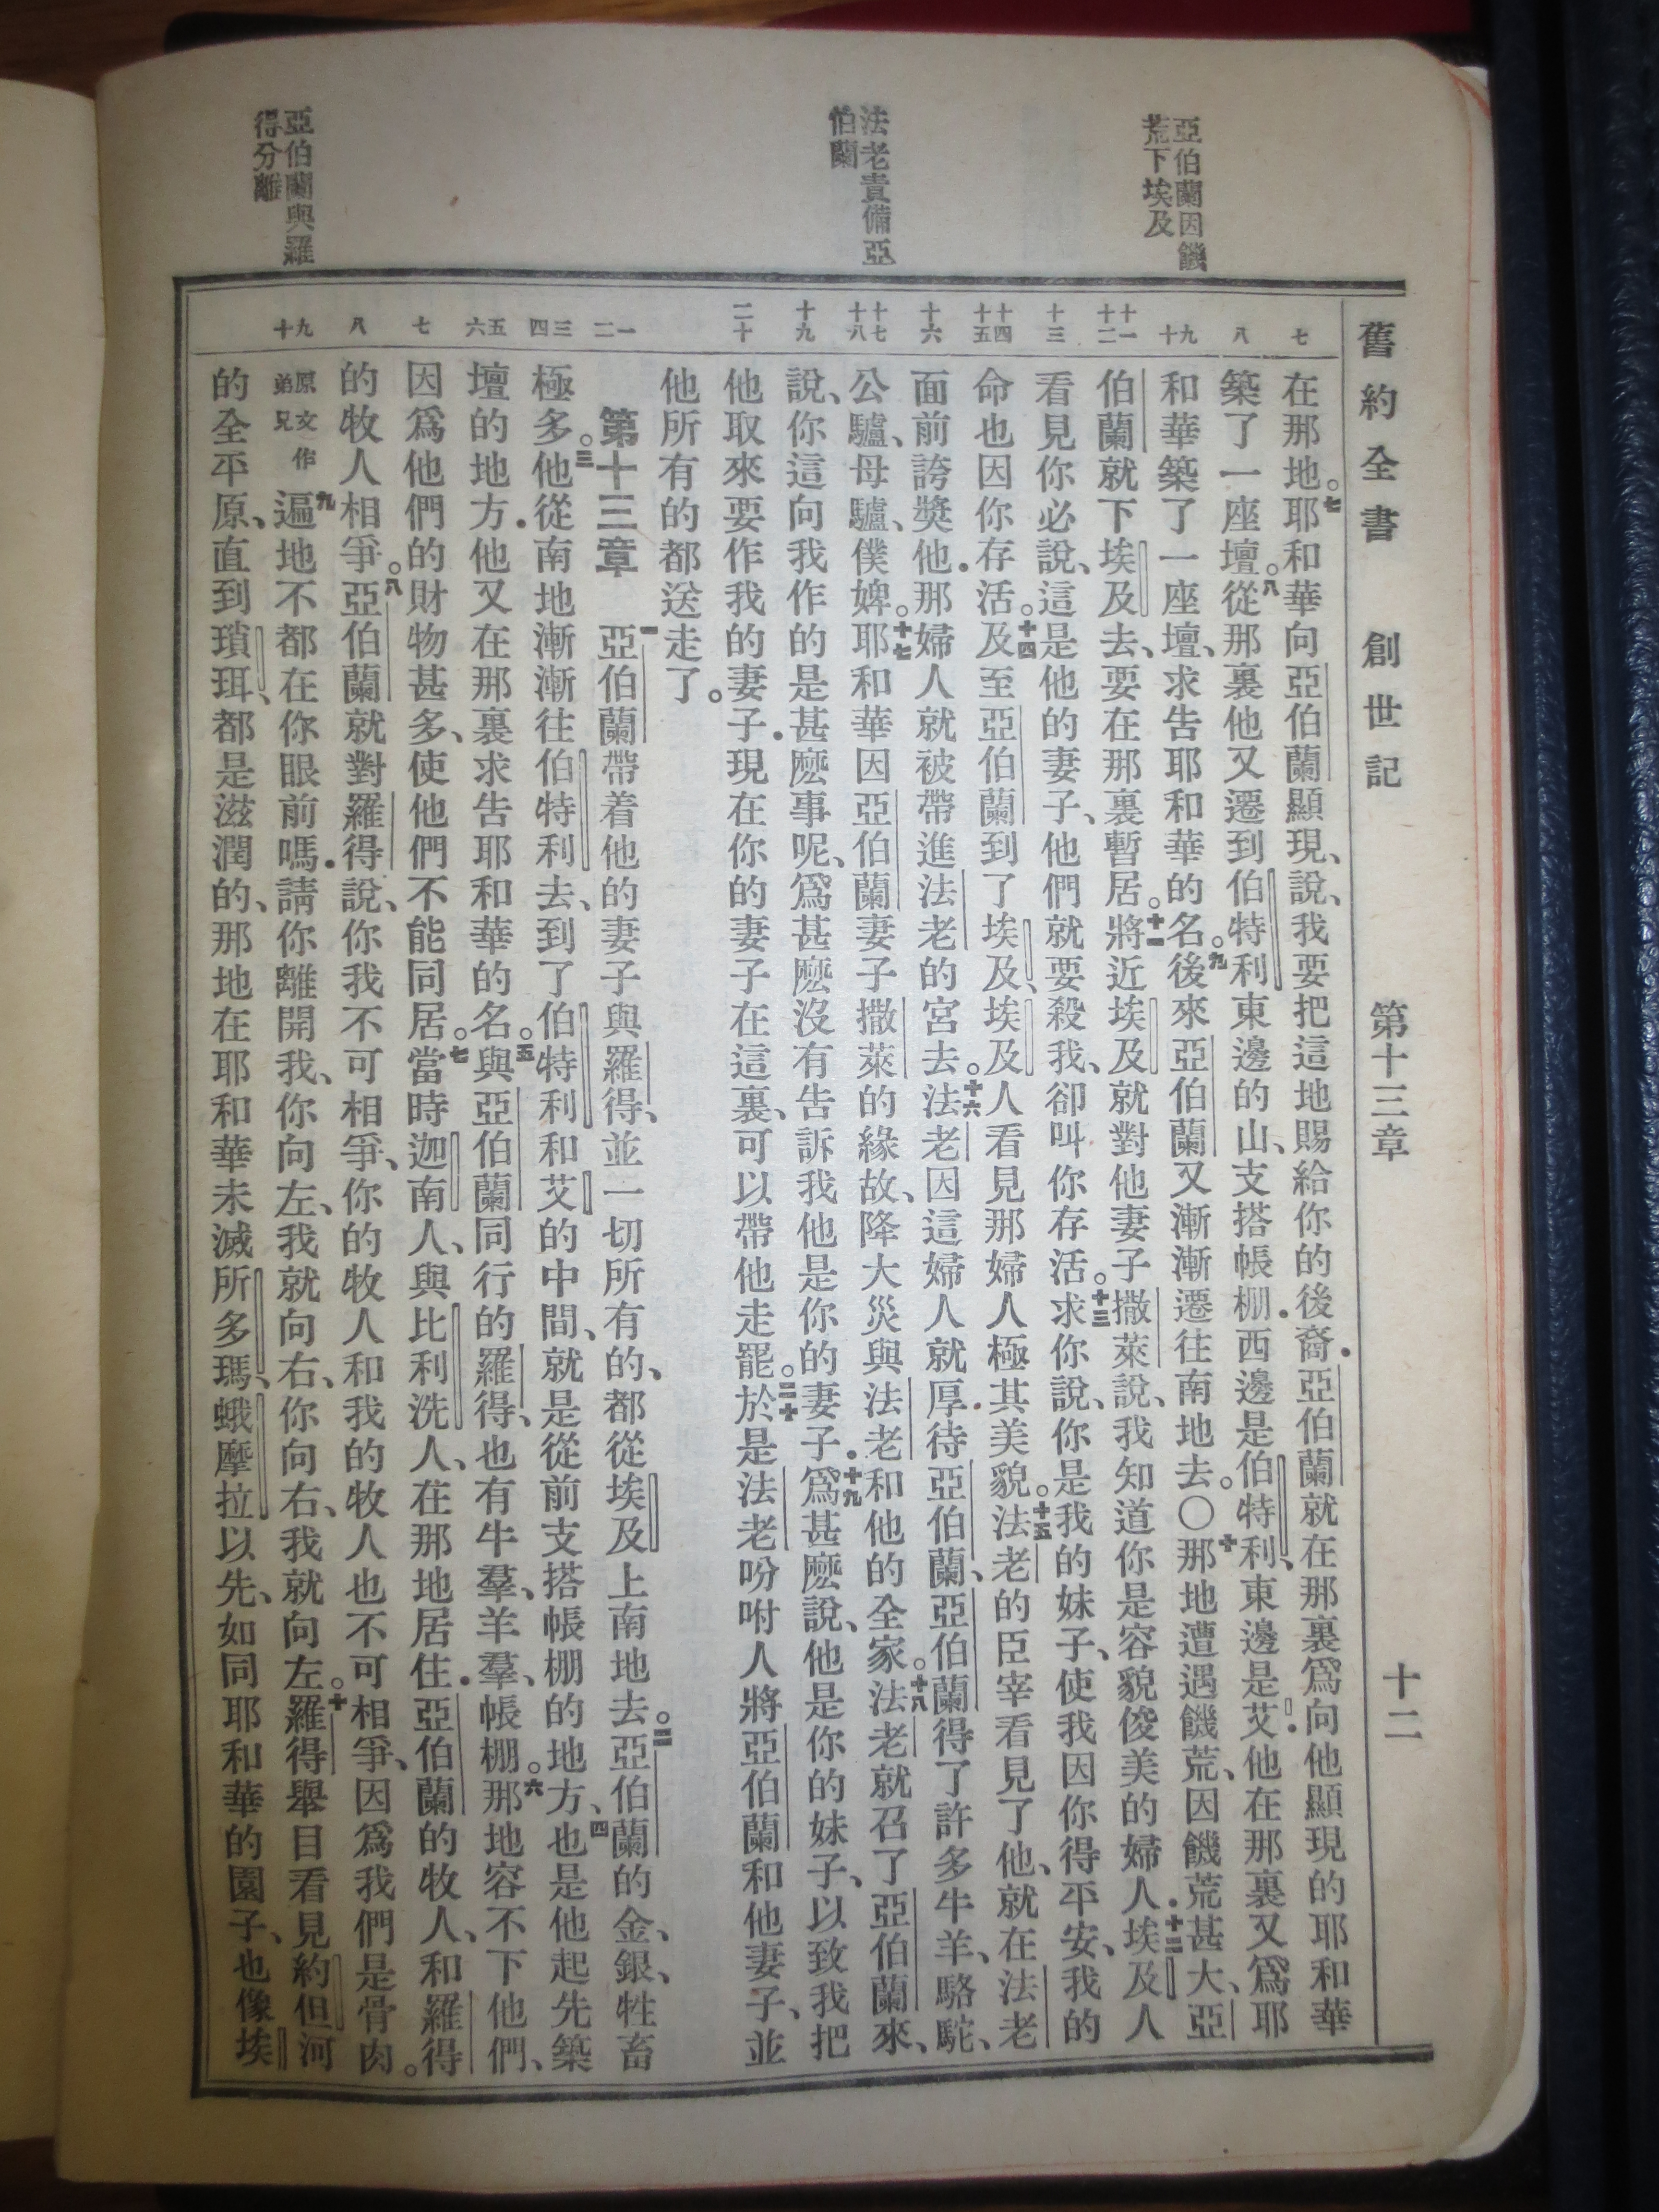 舊約全書 創世記 第十三章 十二
亞伯蘭因饑
荒下埃及
法老責備亞
伯蘭
亞伯蘭與羅
得分離
七
八
九
十
十一
十二
十三
十四
十五
十六
十七
十八
十九
二十
一
二
三
四
五
六
七
八
九
十
在那地。七耶和華向亞伯蘭顯現、說、我要把這地賜給你的後裔．亞伯蘭就在那裏爲向他顯現的耶和華
築了一座壇。八從那裏他又遷到伯特利東邊的山、支搭帳棚．西邊是伯特利、東邊是艾．他在那裏又爲耶
和華築了一座壇、求告耶和華的名。九後來亞伯蘭又漸漸遷往南地去。〇十那地遭遇饑荒、因饑荒甚大、亞
伯蘭就下埃及去、要在那裏暫居。十一將近埃及、就對他妻子撒萊說、我知道你是容貌俊美的婦人．十二埃及人
看見你必說、這是他的妻子、他們就要殺我、卻叫你存活。十三求你說、你是我的妹子、使我因你得平安、我的
命也因你存活。十四及至亞伯蘭到了埃及、埃及人看見那婦人極其美貌。十五法老的臣宰看見了他、就在法老
面前誇獎他．那婦人就被帶進法老的宮去。十六法老因這婦人就厚待亞伯蘭、亞伯蘭得了許多牛羊、駱駝、
公驢、母驢、僕婢。十七耶和華因亞伯蘭妻子撒萊的緣故、降大災與法老和他的全家。十八法老就召了亞伯蘭來、
說、你這向我作的是甚麽事呢、爲甚麽沒有告訴我他是你的妻子．十九爲甚麽說、他是你的妹子、以致我把
他取來要作我的妻子．現在你的妻子在這裏、可以帶他走罷。二十於是法老吩咐人將亞伯蘭和他妻子、並
他所有的都送走了。
第十三章 一亞伯蘭帶着他的妻子與羅得、並一切所有的、都從埃及上南地去。二亞伯蘭的金、銀、牲畜
極多。三他從南地漸漸往伯特利去、到了伯特利和艾的中間、就是從前支搭帳棚的地方、四也是他起先築
壇的地方．他又在那裏求告耶和華的名。五與亞伯蘭同行的羅得、也有牛羣、羊羣、帳棚。六那地容不下他們、
因爲他們的財物甚多、使他們不能同居。七當時迦南人、與比利洗人、在那地居住．亞伯蘭的牧人、和羅得
的牧人相爭。八亞伯蘭就對羅得說、你我不可相爭、你的牧人和我的牧人也不可相爭、因爲我們是骨肉。
原文作弟兄 九遍地不都在你眼前嗎．請你離開我、你向左、我就向右、你向右、我就向左。十羅得舉目看見約但河
的全平原、直到瑣珥、都是滋潤的、那地在耶和華未滅所多瑪、蛾摩拉以先、如同耶和華的園子、也像埃